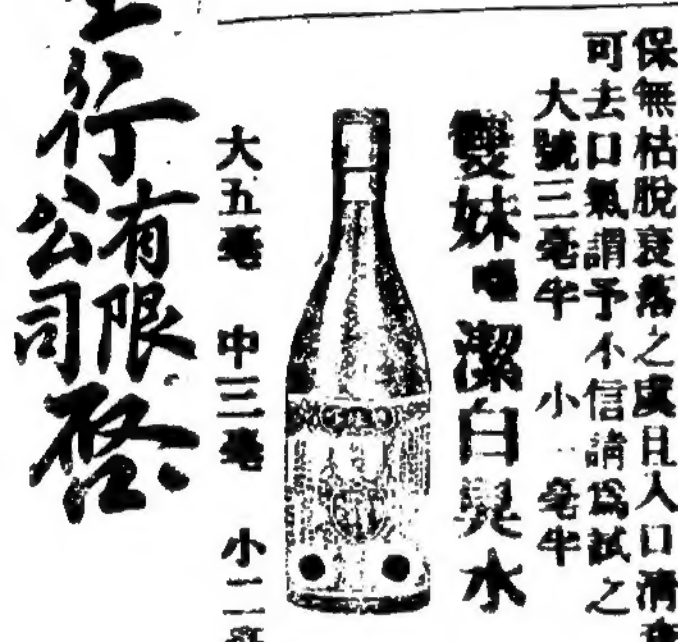 保無枯脫衰落之虞且人口清
可去口氣謂予不信請爲試之
大號三毫半 小 毫半
雙妹嘜潔白臭水
大五毫 中三毫 小二毫
行有限公司啓